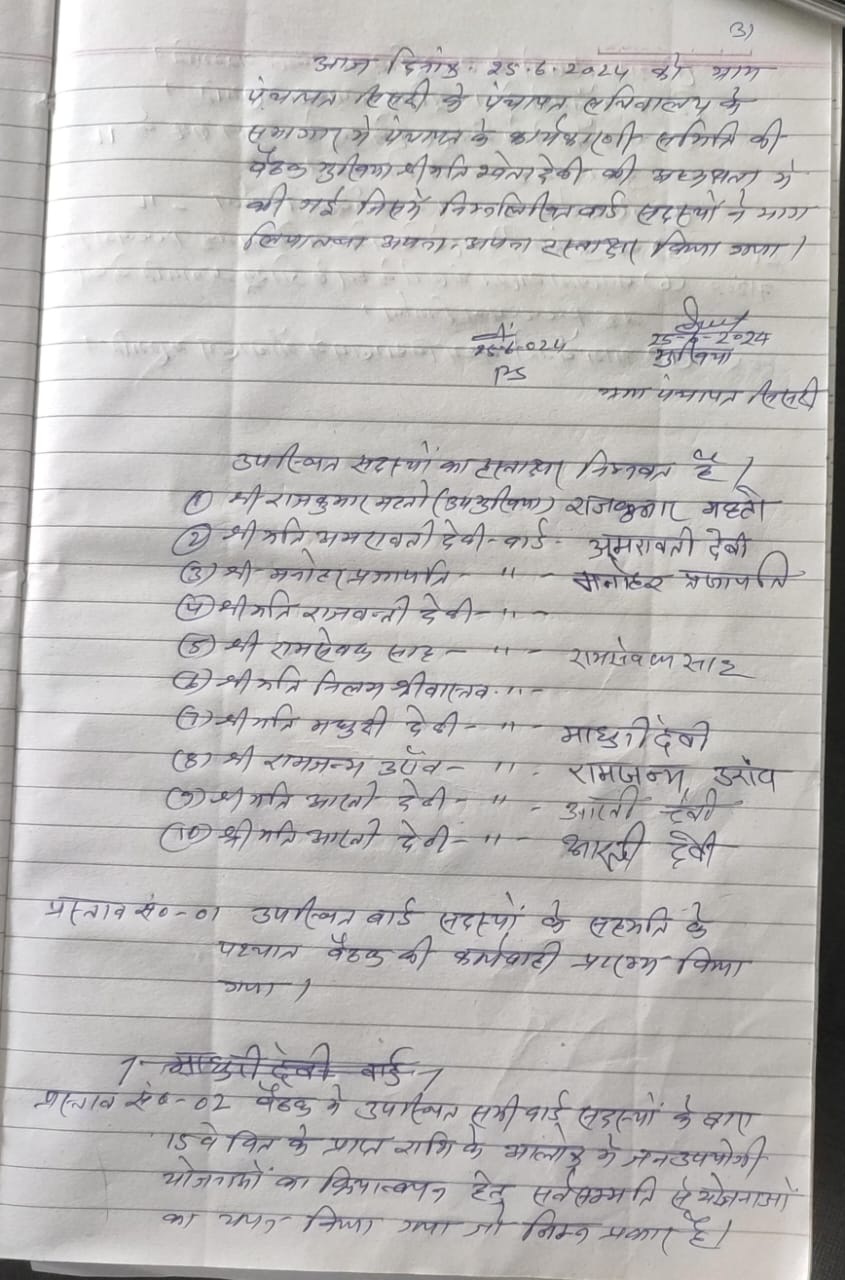 (3)
आज दिनांक. 25.6.2024 को ग्राम
पंचायत सिसरी के पंचायत सचिवालय के
सभागार में पंचायत के कार्यकारणी समिति की
बैठक मुखिया श्रीमति श्वेता देवी की अध्यक्षता में
की गई जिसमें निम्नलिखित वार्ड सदस्यों ने भाग
लिया तथा अपना-अपना हस्ताक्षर किया गया।
25.6.024
25-6-2024
PS
मुखिया
ग्राम पंचायत सिसरी
उपस्थित सदस्यों का हस्ताक्षर निम्नवत है।
(1) श्री राजकुमार महतो (उपमुखिया) राजकुमार महतो
(2) श्रीमति अमरावती देवी - वार्ड - अमरावती देवी
(3) श्री मनोहर प्रजापति - " - मनोहर प्रजापति
(4) श्रीमति राजवन्ती देवी - " -
(5) श्री रामसेवक साह - " - रामसेवक साह
(6) श्रीमति निलम श्रीवास्तव - " -
(7) श्रीमति मधुरी देवी - " - माधुरी देवी
(8) श्री रामजन्म उराँव - " - रामजन्म उरांव
(9) श्रीमति आरती देवी - " - आरती देवी
(10) श्रीमति आरती देवी - " - आरती देवी
प्रस्ताव सं० - 01 उपस्थित वार्ड सदस्यों के सहमति के
पश्चात बैठक की कार्यवाही प्रारम्भ किया
गया।
माधुरी देवी वार्ड
प्रस्ताव सं० - 02 बैठक में उपस्थित सभी वार्ड सदस्यों के द्वारा
15 वे वित के प्राप्त राशि के आलोक में जनउपयोगी
योजनाओं का क्रियान्वयन हेतु सर्वसम्मति से योजनाओं
का चयन किया गया जो निम्न प्रकार है।